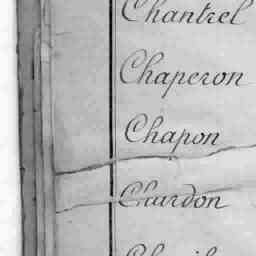 Chantrel
Chaperon
Chapon
Chardon